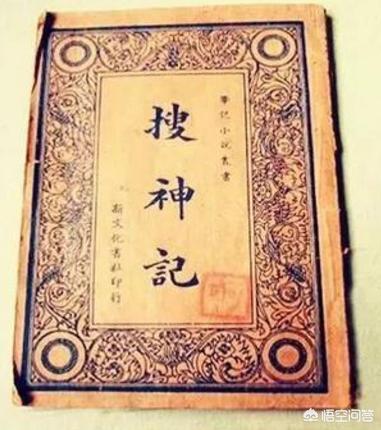 筆記小說叢書
搜神記
新文化書社印行
悟空问答